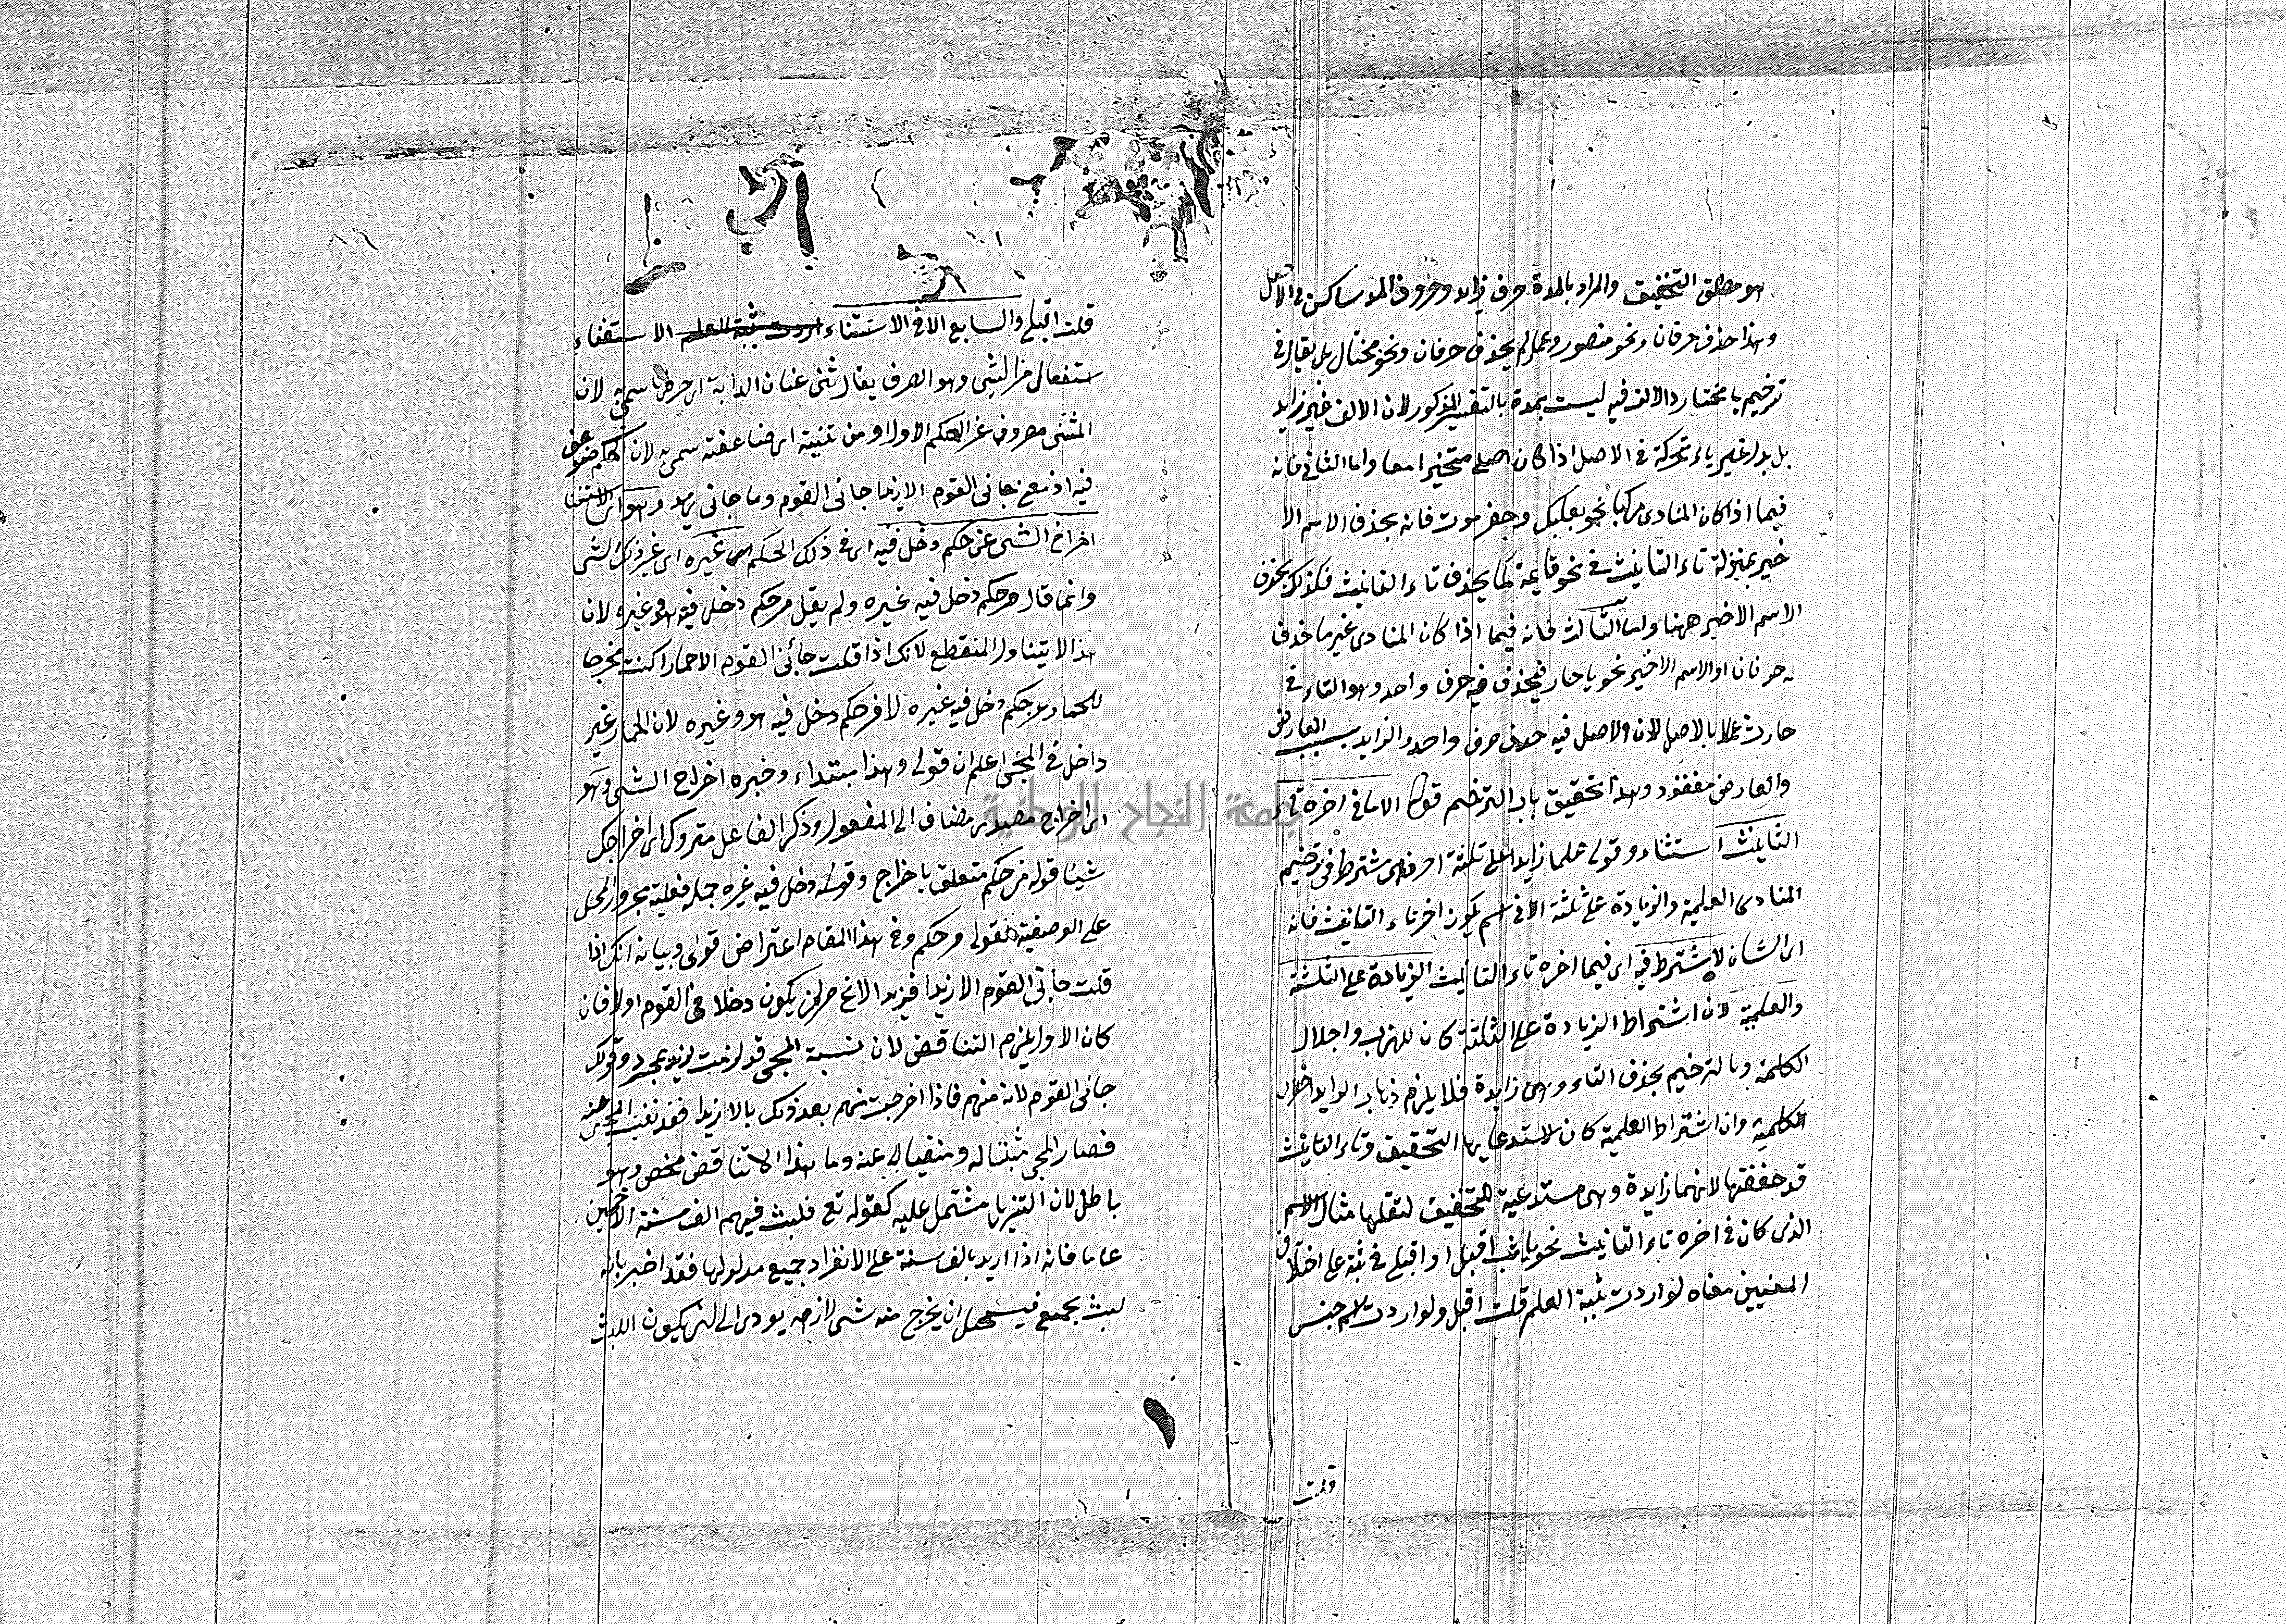 هو مطلق التخفيف والمراد بالمدة حرف زايد وحروف المد ساكن في الاصل
وهذا حذف حرفان ونحو منصور وعمار لم يحذف حرفان ونحو مختال بل يقال في
ترخيم يا مختار والالف فيه ليست بمدة بالتفسير المذكور لان الالف غير زايد
بل بدل غير ياء متحركة في الاصل اذا كان اصله واما الثاني فانه
فيما اذا كان المنادى مركبا نحو بعلبك وحضر موت فانه يحذف الاسم الا
خير بمنزلة تاء التانيث في نحو قايمة كما يحذف تاء التانيث فكذلك يحذف
الاسم الاخير ههنا واما الثالث فانه فيما اذا كان المنادى غير ما حذف
له حرفان او الاسم الاخير نحو يا حار فيحذف فيه حرف واحد وهو الثاء في
حارث عملا بالاصل لان الاصل فيه حذف حرف واحد والزايد بسبب العارض
والعارض مفقود وهذا تحقيق باب الترخيم قوله الا ما في اخره تاء
التانيث استثناء وقوله علما زايدا على ثلثة احرف اي شترط في ترخيم
المنادى العلمية والزيادة على ثلثة الا في اسم يكون اخره تاء التانيث فانه
اي الشان لا يشترط فيه اي فيما اخره تاء التانيث الزيادة على الثلثة
والعلمية لان اشتراط الزيادة على الثلثة كان للهرب واجلال
الكلمة وبالترخيم بحذف التاء وهي زايدة فلا يلزم ذهاب الزايد اخلال
الكلمة وان اشتراط العلمية كان لاستدعايها التخفيف وتاء التانيث
قد خففتها لانهما زايدة وهي مستدعية للتخفيف لثقلها مثال الاسم
الذى كان في اخره تاء التانيث نحو يا ثب اقبل او اقبلي في ثبة على اختلاف
المعنيين معناه لو اردت بثبة العلم قلت اقبل ولو اردت اسم جنس
قلت
قلت اقبلي والسابع الا في الاستثناء اردت بثبة العلم الاستثناء
ستفعال من الثني وهو الصرف يقال ثنى عنان الدابة اي صرفها سمي به لان
المثنى مصروف عن الحكم الاول او من تثنية اي ضاعفته سمي به لان الحكم ضوعف
فيه اذ معنى جانى القوم الا زيدا جانى القوم وما جانى زيد وهو اي الاستثناء
اخراج الشى عن حكم دخل فيه اي في ذلك الحكم غيره اي غير ذلك الشى
وانما قال من حكم دخل فيه غيره ولم يقل من حكم دخل فيه هو وغيره لان
هذا لا يتناول المنقطع لانك اذا قلت جائنى القوم الا حمارا كنت مخرجا
للحمار من حكم دخل فيه غيره لا من حكم دخل فيه هو وغيره لان الحمار غير
داخل في المجئ اعلم ان قوله وهذا مبتداء وخبره اخراج الشى وهو
اي اخراج مصدر مضاف الى المفعول وذكر الفاعل متروك اي اخراجك
شيئا قوله من حكم متعلق باخراج وقوله دخل فيه غيره جملة فعلية مجرور المحل
على الوصفية لقوله من حكم وفي هذا المقام اعتراض قوى وبيانه انك اذا
قلت جانى القوم الا زيدا فزيد لا يخ من ان يكون دخلا في القوم اولا فان
كان الاول يلزم التناقض لان نسبة المجى قد لزمت لزيد بمجرد قولك
جانى القوم لانه منهم فاذا اخرجت منهم بعد ذلك بالا زيدا فقد نفيت المجى عنه
فصار المجى مثبتا له ومنفيا عنه وما هذا الا تناقض محض وهو
باطل لان التنزيل مشتمل عليه كقوله تع فلبث فيهم الف سنة الا خمسين
عاما فانه اذا اريد بالف سنة على الانفراد جميع مدلولها فقد اخبر بانه
لبث بجميع فيستحيل ان يخرج منه شى لازمه يودى الى ان يكون اللبث
جامعة النجاح الوطنية